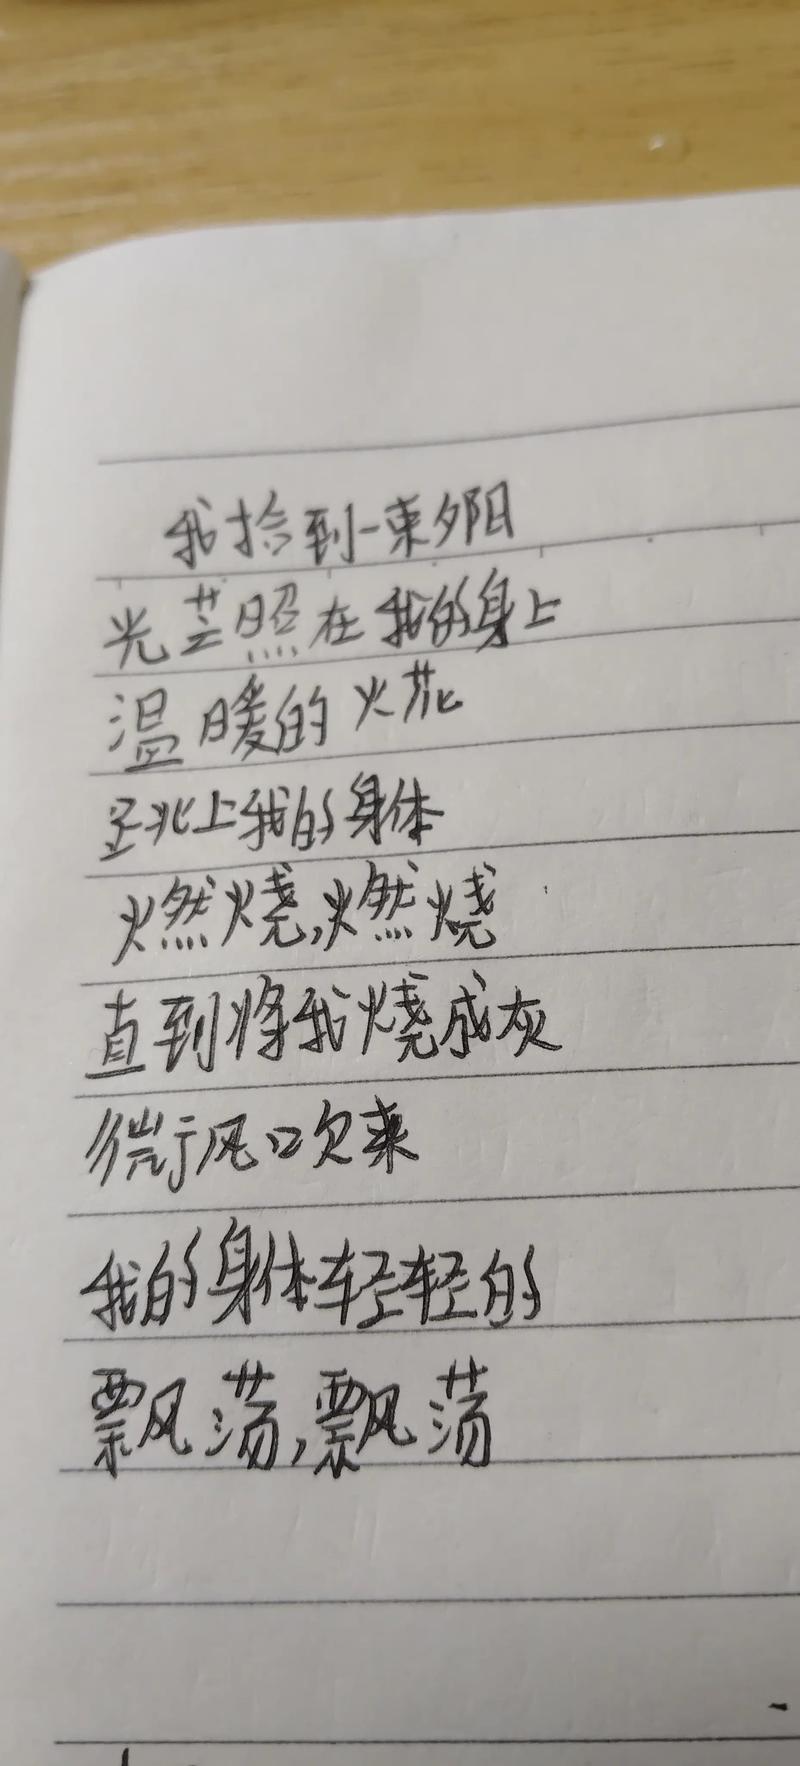 我拾到一束夕阳
光芒照在我的身上
温暖的火花
上我的身体
燃烧,燃烧
直到将我烧成灰
微风吹来
我的身体轻轻的
飘荡,飘荡